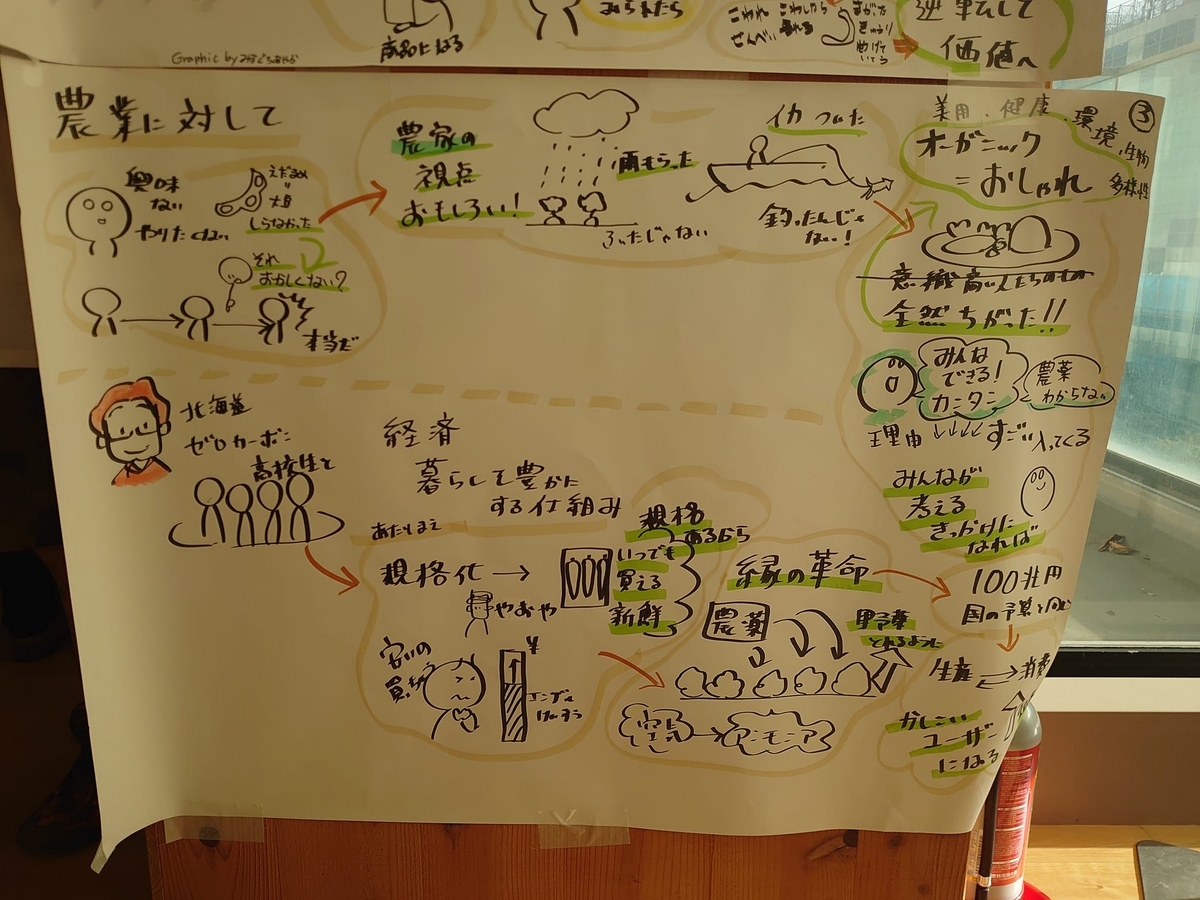 商品になる
逆転して
価値へ
Graphic by
③
農業に対して
興味
ない
やりたくない
えだまめ
=
大豆
しらなかった
それ
おかしくない?
本当だ
農家の
視点
おもしろい!
雨もらった
ふったじゃない
イカつれた
釣ったんじゃ
ない!
美用、健康、環境、生物
多様性
オーガニック
=おしゃれ
意識高い人たちのもの
全然ちがった!!
みんな
できる!
カンタン
農薬
わからない
理由
すごい入ってくる
みんなが
考える
きっかけに
なれば
北海道
ゼロカーボン
高校生と
経済
暮らして豊かに
する仕組み
あたりまえ
規格化→
やおや
規格
あるから
いつでも
買える
新鮮
安いの
買う
¥
緑の革命
農薬
野菜
とれるように
空気
アンモニア
100兆円
国の予算と同じ
生産
消費
かしこい
ユーザー
になる